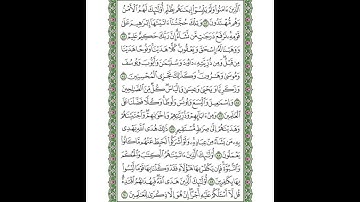 ٱلَّذِينَ ءَامَنُوا۟ وَلَمْ يَلْبِسُوٓا۟ إِيمَـٰنَهُم بِظُلْمٍ أُو۟لَـٰٓئِكَ لَهُمُ ٱلْأَمْنُ
وَهُم مُّهْتَدُونَ ۝ وَتِلْكَ حُجَّتُنَآ ءَاتَيْنَـٰهَآ إِبْرَٰهِيمَ عَلَىٰ
قَوْمِهِۦ نَرْفَعُ دَرَجَـٰتٍ مَّن نَّشَآءُ إِنَّ رَبَّكَ حَكِيمٌ عَلِيمٌ ۝
وَوَهَبْنَا لَهُۥٓ إِسْحَـٰقَ وَيَعْقُوبَ كُلًّا هَدَيْنَا وَنُوحًا هَدَيْنَا
مِن قَبْلُ وَمِن ذُرِّيَّتِهِۦ دَاوُۥدَ وَسُلَيْمَـٰنَ وَأَيُّوبَ وَيُوسُفَ
وَمُوسَىٰ وَهَـٰرُونَ وَكَذَٰلِكَ نَجْزِى ٱلْمُحْسِنِينَ ۝
وَزَكَرِيَّا وَيَحْيَىٰ وَعِيسَىٰ وَإِلْيَاسَ كُلٌّ مِّنَ ٱلصَّـٰلِحِينَ ۝
وَإِسْمَـٰعِيلَ وَٱلْيَسَعَ وَيُونُسَ وَلُوطًا وَكُلًّا فَضَّلْنَا عَلَى
ٱلْعَـٰلَمِينَ ۝ وَمِنْ ءَابَآئِهِمْ وَذُرِّيَّـٰتِهِمْ وَإِخْوَٰنِهِمْ وَٱجْتَبَيْنَـٰهُمْ
وَهَدَيْنَـٰهُمْ إِلَىٰ صِرَٰطٍ مُّسْتَقِيمٍ ۝ ذَٰلِكَ هُدَى ٱللَّهِ يَهْدِى
بِهِۦ مَن يَشَآءُ مِنْ عِبَادِهِۦ وَلَوْ أَشْرَكُوا۟ لَحَبِطَ عَنْهُم مَّا كَانُوا۟
يَعْمَلُونَ ۝ أُو۟لَـٰٓئِكَ ٱلَّذِينَ ءَاتَيْنَـٰهُمُ ٱلْكِتَـٰبَ وَٱلْحُكْمَ
وَٱلنُّبُوَّةَ فَإِن يَكْفُرْ بِهَا هَـٰٓؤُلَآءِ فَقَدْ وَكَّلْنَا بِهَا قَوْمًا لَّيْسُوا۟
بِهَا بِكَـٰفِرِينَ ۝ أُو۟لَـٰٓئِكَ ٱلَّذِينَ هَدَى ٱللَّهُ فَبِهُدَىٰهُمُ ٱقْتَدِهْ
قُل لَّآ أَسْـَٔلُكُمْ عَلَيْهِ أَجْرًا إِنْ هُوَ إِلَّا ذِكْرَىٰ لِلْعَـٰلَمِينَ ۝